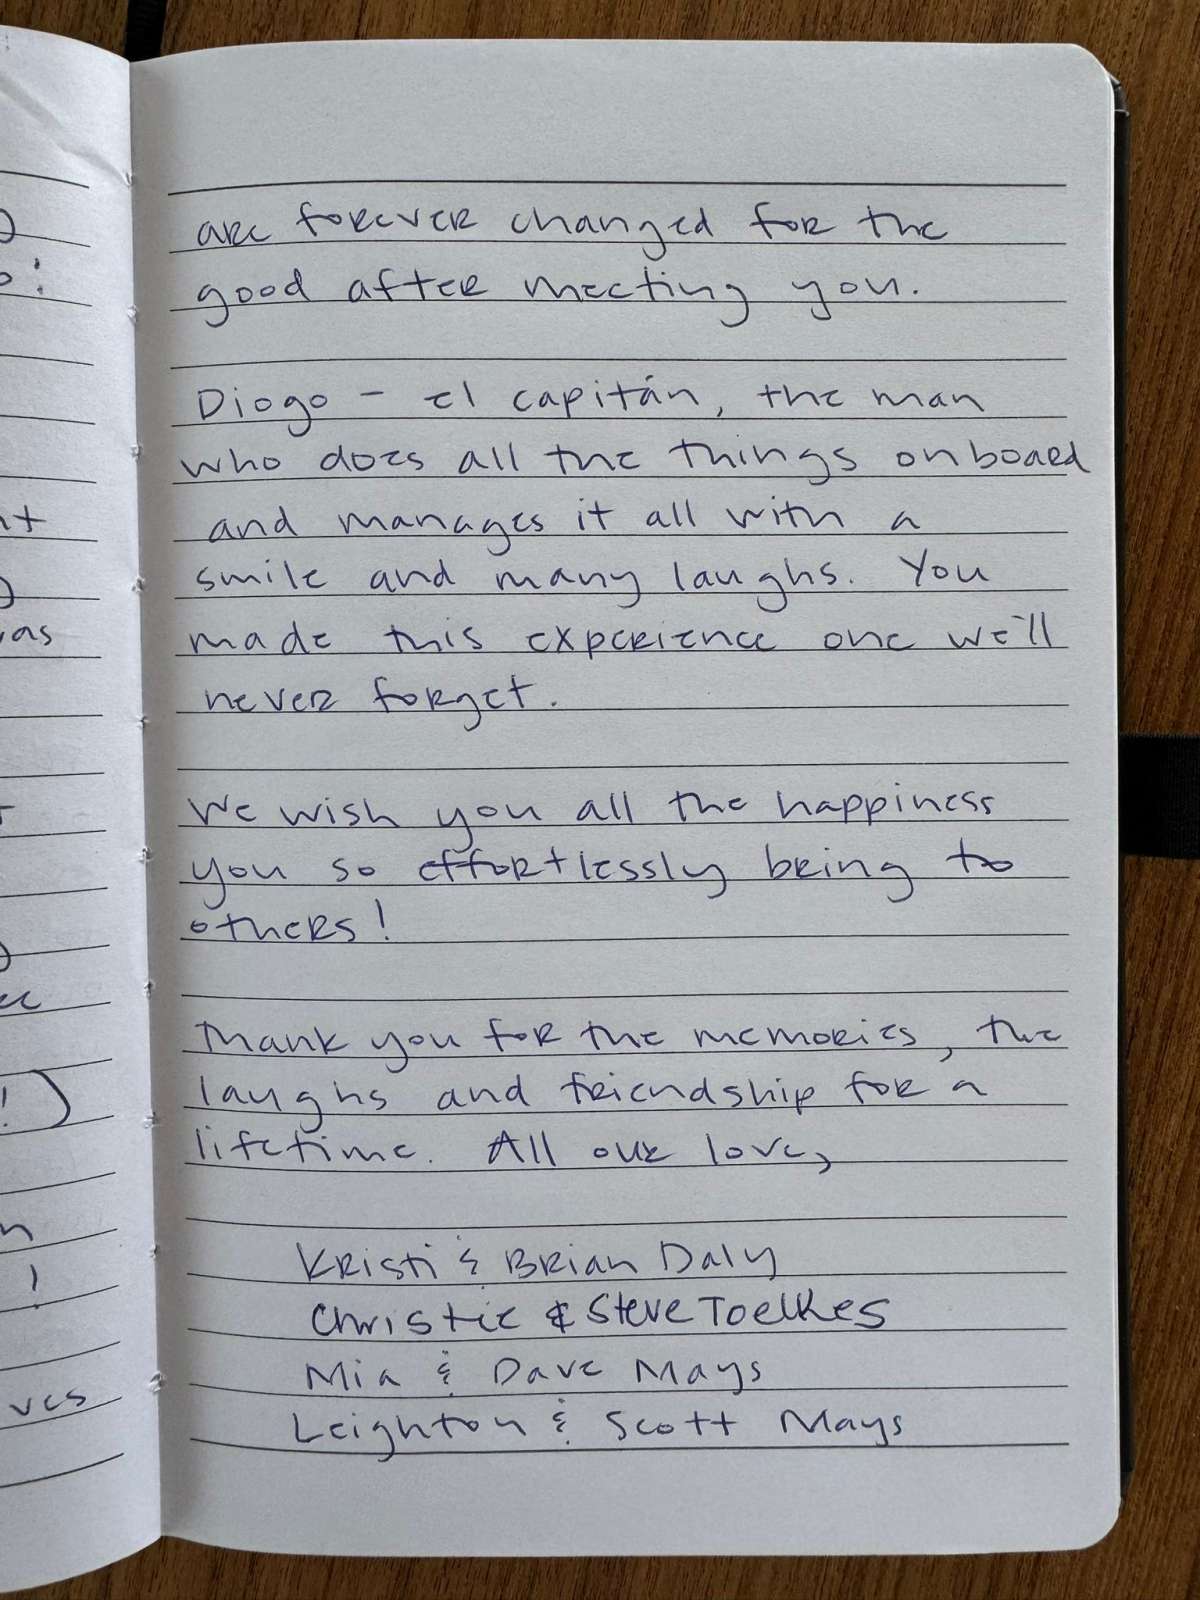 are forever changed for the
good after meeting you.
Diogo - el capitán, the man
who does all the things onboard
and manages it all with a
smile and many laughs. You
made this experience one we'll
never forget.
We wish you all the happiness
you so effortlessly bring to
others!
Thank you for the memories, the
laughs and friendship for a
lifetime. All our love,
Kristi & Brian Daly
Christie & Steve Toelkes
Mia & Dave Mays
Leighton & Scott Mays